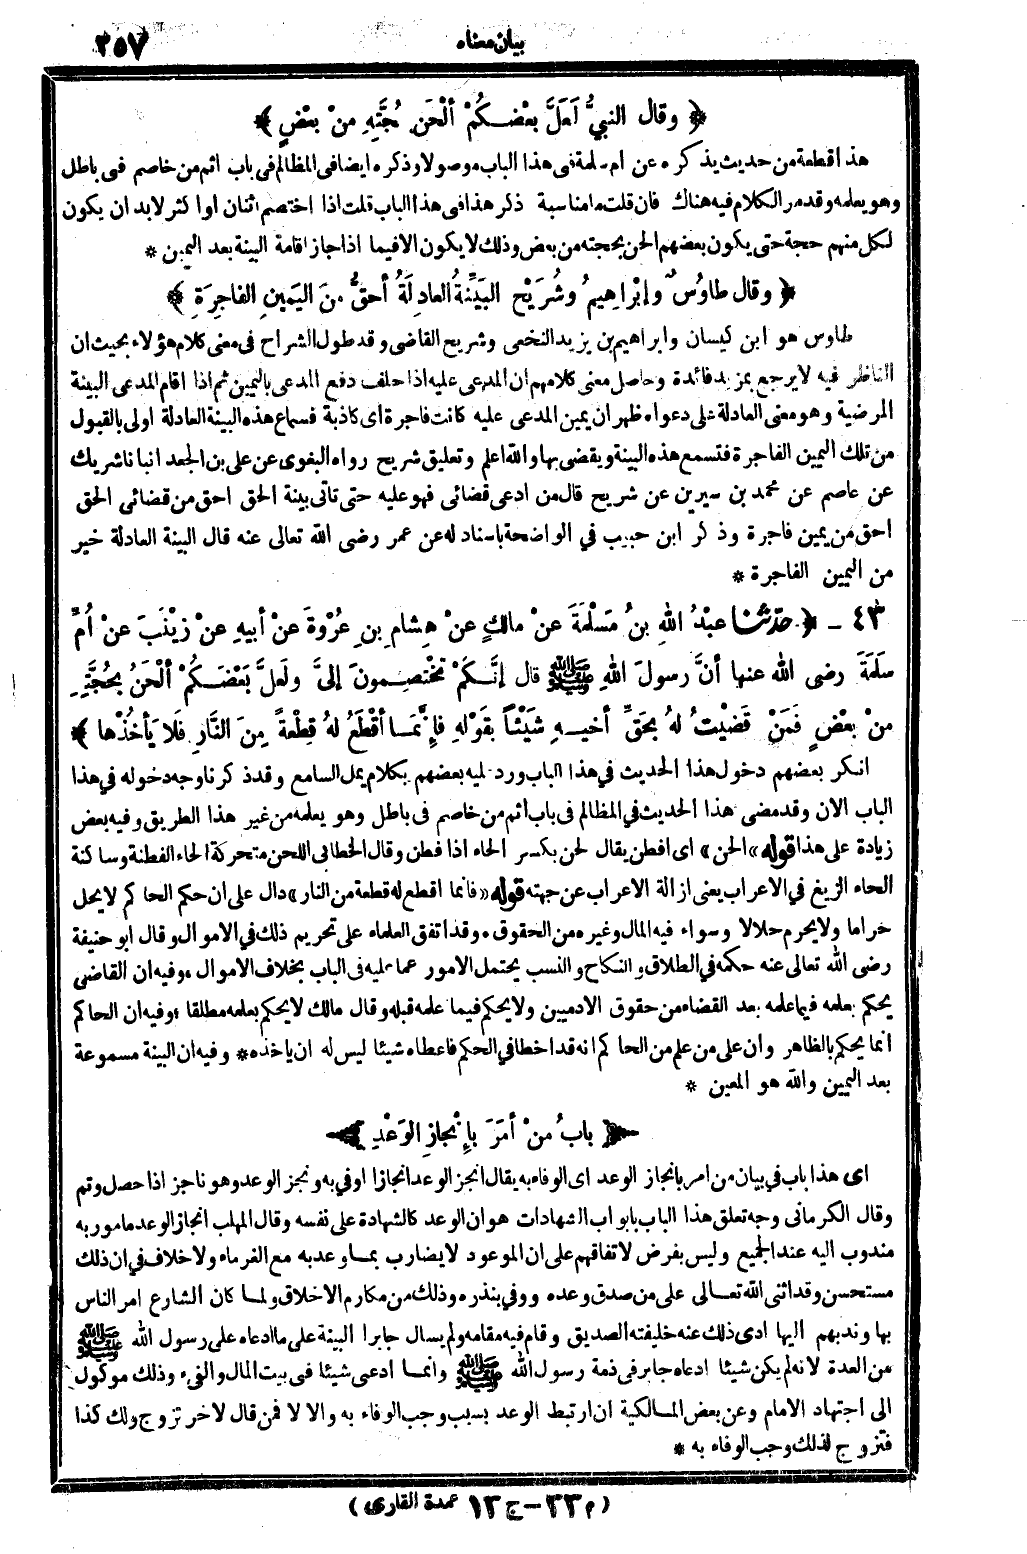 بيان معناه
٢٥٧
﴿ وقال النبيُّ لَعَلَّ بعْضَكُمْ ألْحَنُ بحُجَّتِهِ مِنْ بعْضٍ ﴾
هذا قطعة من حديث يذكره عن ام سلمة فى هذا الباب موصولا وذكره ايضا فى المظالم فى باب اثم من خاصم فى باطل
وهو يعلمه وقد مر الكلام فيه هناك فان قلت ما مناسبة ذكر هذا فى هذا الباب قلت اذا اختصم اثنان او اكثر لابد ان يكون
لكل منهم حجة حتى يكون بعضهم الحن بحجته من بعض وذلك لا يكون الا فيما اذا جاز اقامة البينة بعد اليمين *
﴿ وقال طاوُسٌ وإبْراهِيمُ وشُرَيْحٌ البَيِّنَةُ العادِلَةُ أحقُّ مِنَ اليَمِينِ الفاجِرَةِ ﴾
طاوس هو ابن كيسان وابراهيم بن يزيد النخعى وشريح القاضى وقد طول الشراح فى معنى كلام هؤلاء بحيث ان
الناظر فيه لا يرجع بمزيد فائدة وحاصل معنى كلامهم ان المدعى عليه اذا حلف دفع المدعى باليمين ثم اذا اقام المدعى البينة
المرضية وهو معنى العادلة على دعواه ظهر ان يمين المدعى عليه كانت فاجرة اى كاذبة فسماع هذه البينة العادلة اولى بالقبول
من تلك اليمين الفاجرة فتسمع هذه البينة ويقضى بها والله اعلم وتعليق شريح رواه البغوى عن على بن الجعد انبانا شريك
عن عاصم عن محمد بن سيرين عن شريح قال من ادعى قضائى فهو عليه حتى تاتى بينة الحق احق من قضائى الحق
احق من يمين فاجرة وذكر ابن حبيب في الواضحة باسناد له عن عمر رضى الله تعالى عنه قال البينة العادلة خير
من اليمين الفاجرة *
٤٣ ـ ﴿ حدّثنا عبْدُ اللهِ بنُ مَسْلَمَةَ عنْ مالكٍ عنْ هِشامِ بنِ عُرْوَةَ عنْ أبيهِ عنْ زَيْنَبَ عنْ أُمِّ
سلَمَةَ رضى الله عنها أنَّ رسولَ اللهِ ﷺ قال إنَّكُمْ تخْتَصِمونَ إلىَّ ولَعلَّ بَعْضَكُمْ ألْحَنُ بحُجَّتِهِ
مِنْ بعْضٍ فَمَنْ قَضَيْتُ لهُ بحَقِّ أخيهِ شَيْئًا بقَوْلهِ فإنَّما أقْطَعُ لهُ قِطْعةً مِنَ النَّارِ فَلا يَأخُذْها ﴾
انكر بعضهم دخول هذا الحديث في هذا الباب ورد عليه بعضهم بكلام يمل السامع وقد ذكرنا وجه دخوله في هذا
الباب الان وقد مضى هذا الحديث في المظالم فى باب اثم من خاصم فى باطل وهو يعلمه من غير هذا الطريق وفيه بعض
زيادة على هذا قوله «الحن» اى افطن يقال لحن بكسر الحاء اذا فطن وقال الخطابى اللحن متحركة الحاء الفطنة وساكنة
الحاء الزيغ في الاعراب يعنى ازالة الاعراب عن جهته قوله «فانما اقطع له قطعة من النار» دال على ان حكم الحاكم لا يحل
حراما ولا يحرم حلالا وسواء فيه المال وغيره من الحقوق ٠ وقد اتفق العلماء على تحريم ذلك في الاموال وقال ابو حنيفة
رضى الله تعالى عنه حكمه في الطلاق والنكاح والنسب يحتمل الامور عما عليه فى الباب بخلاف الاموال ٠ وفيه ان القاضى
يحكم بعلمه فيما علمه بعد القضاء من حقوق الادميين ولا يحكم فيما علمه قبله وقال مالك لا يحكم بعلمه مطلقا ٠ وفيه ان الحاكم
انما يحكم بالظاهر وان على من علم من الحاكم انه قد اخطا في الحكم فاعطاه شيئا ليس له ان ياخذه * وفيه ان البينة مسموعة
بعد اليمين والله هو المعين *
﴿ بابُ منْ أمَرَ بإِنْجازِ الوَعْدِ ﴾
اى هذا باب في بيان من امر بانجاز الوعد اى الوفاء به يقال انجز الوعد انجازا اوفي به ونجز الوعد وهو ناجز اذا حصل وتم
وقال الكرمانى وجه تعلق هذا الباب بابواب الشهادات هو ان الوعد كالشهادة على نفسه وقال المهلب انجاز الوعد مامور به
مندوب اليه عند الجميع وليس بفرض لاتفاقهم على ان الموعود لا يضارب بما وعد به مع الغرماء ولا خلاف في ان ذلك
مستحسن وقد اثنى الله تعالى على من صدق وعده ووفي بنذره وذلك من مكارم الاخلاق ولما كان الشارع امر الناس
بها وندبهم اليها ادى ذلك عنه خليفته الصديق وقام فيه مقامه ولم يسال جابرا البينة على ما ادعاه على رسول الله ﷺ
من العدة لانه لم يكن شيئا ادعاه جابر فى ذمة رسول الله ﷺ وانما ادعى شيئا فى بيت المال والفىء وذلك موكول
الى اجتهاد الامام وعن بعض المالكية ان ارتبط الوعد بسبب وجب الوفاء به والا لا فمن قال لاخر تزوج ولك كذا
فتزوج لذلك وجب الوفاء به *
(م ٣٣ – ج ١٣ عمدة القارى)